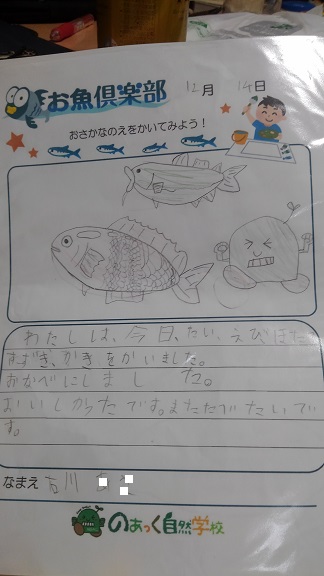 お魚倶楽部 12月 14日
おさかなのえをかいてみよう!
わたしは、今日、たい、えびほた
すずき、かきをかいました。
おなべにしました。
おいしかったです。またたべたいで
す。
なまえ
のあっく自然学校